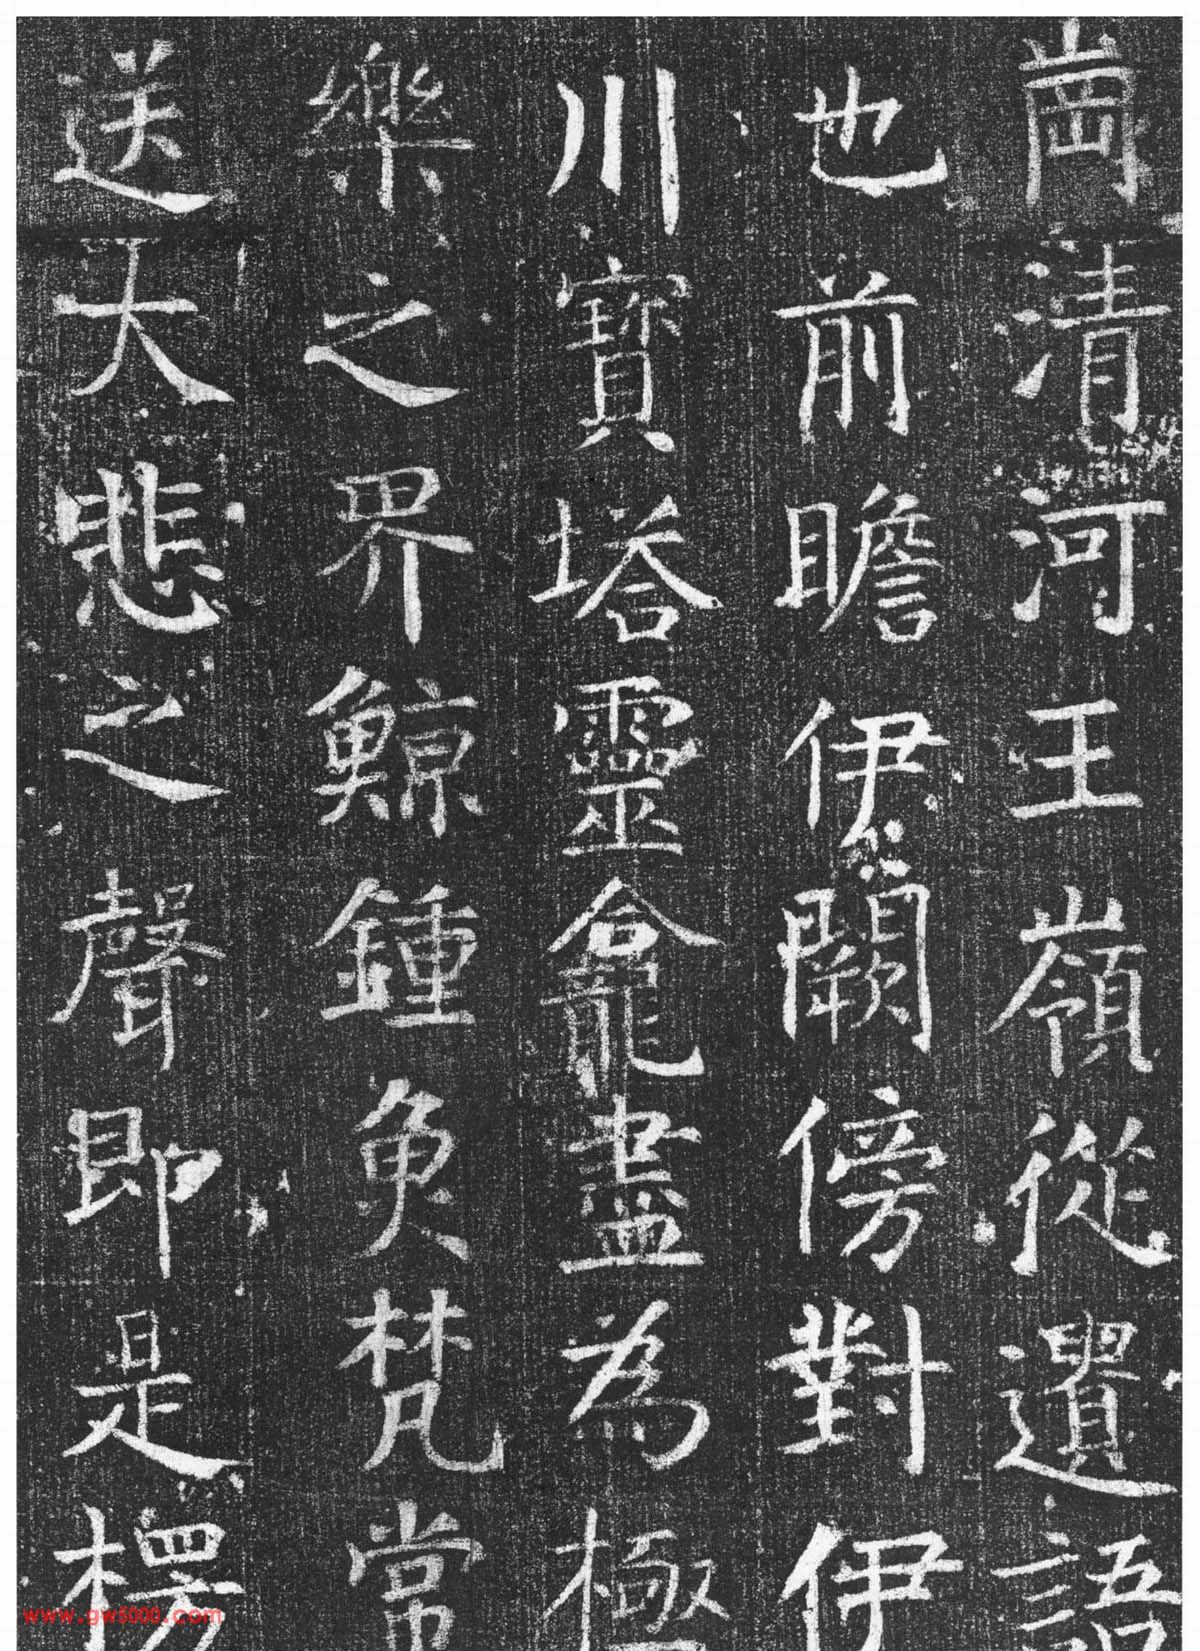 崗清河王嶺從遺語
也前瞻伊闕傍對伊
川寶塔靈龕盡為極
樂之界鯨鍾魚梵常
送大悲之聲即是楞
www.gw5000.com